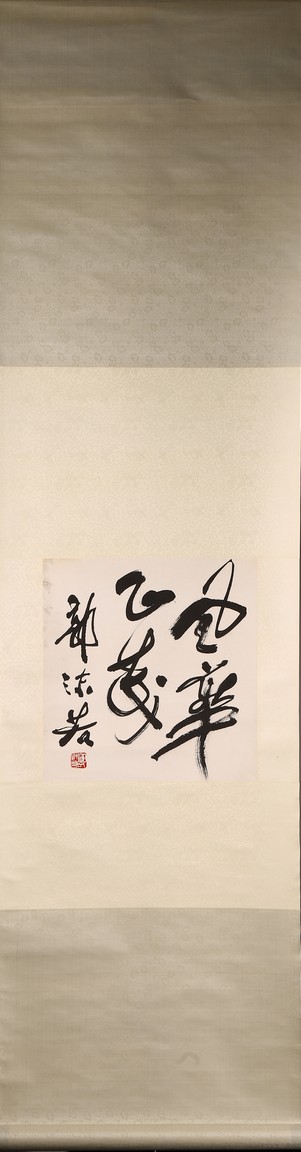 風華
正茂
郭沫若